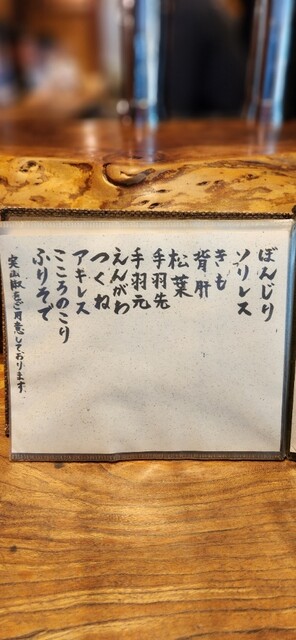 ぼんじり
ソリレス
きも
背肝
松葉
手羽先
手羽元
えんがわ
つくね
アキレス
こころのこり
ふりそで
実山椒をご用意しております。